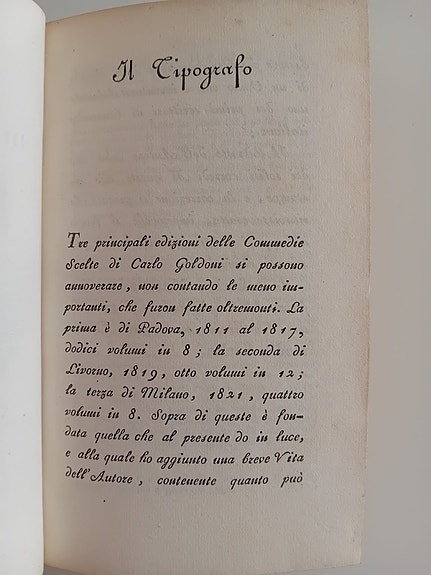 Il Tipografo
Tre principali edizioni delle Commedie
Scelte di Carlo Goldoni si possono
annoverare, non contando le meno im-
portanti, che furon fatte oltremonti. La
prima è di Padova, 1811 al 1817,
dodici volumi in 8; la seconda di
Livorno, 1819, otto volumi in 12;
la terza di Milano, 1821, quattro
volumi in 8. Sopra di queste è fon-
data quella che al presente do in luce,
e alla quale ho aggiunto una breve Vita
dell'Autore, contenente quanto può